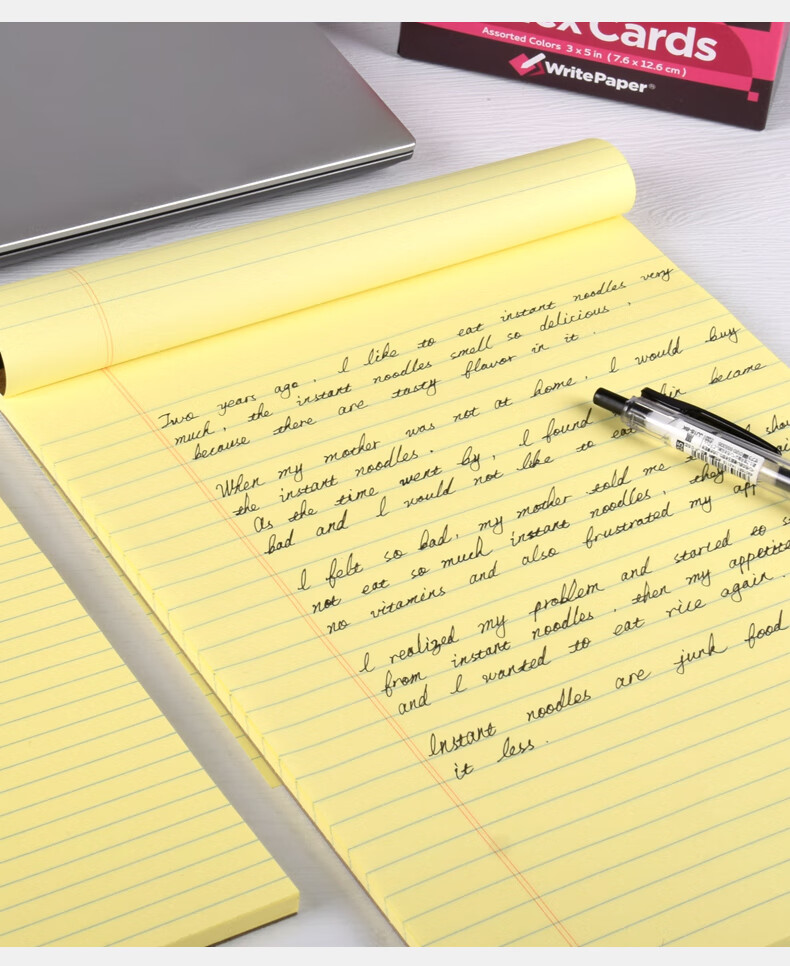 Cards
Assorted Colors 3 x 5 in (7.6 x 12.6 cm)
WritePaper®
Two years ago, I like to eat instant noodles very
much, the instant noodles smell so delicious,
because there are tasty flavor in it.
When my mother was not at home, I would buy
the instant noodles.
As the time went by, I found became
bad and I would not like to eat
I felt so bad, my mother told me
not eat so much instant noodles, they
no vitamins and also frustrated my
I realized my problem and started to
from instant noodles, then my appetite
and I wanted to eat rice again.
Instant noodles are junk food
it less.